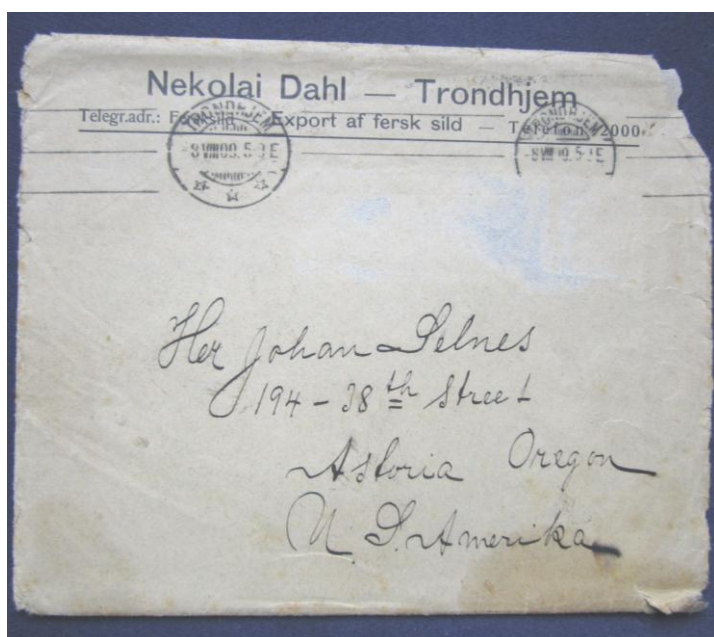 Nekolai Dahl — Trondhjem
Telegr.adr.: Export af fersk sild — Telefon 2000
TRONDHJEM
-8 VIII 09. 5-
TRONDHJEM
Her Johan Selnes
194 - 38th Street
Astoria Oregon
U. S. Amerika